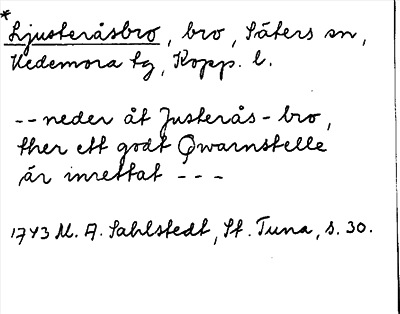 *
Ljusteråsbro, bro, Säters sn,
Hedemora tg, Kopp. l.
-- neder åt Justerås-bro,
ther ett godt Qwarnstelle
är inrettat ---
1743 M. A. Sahlstedt, St. Tuna, s. 30.